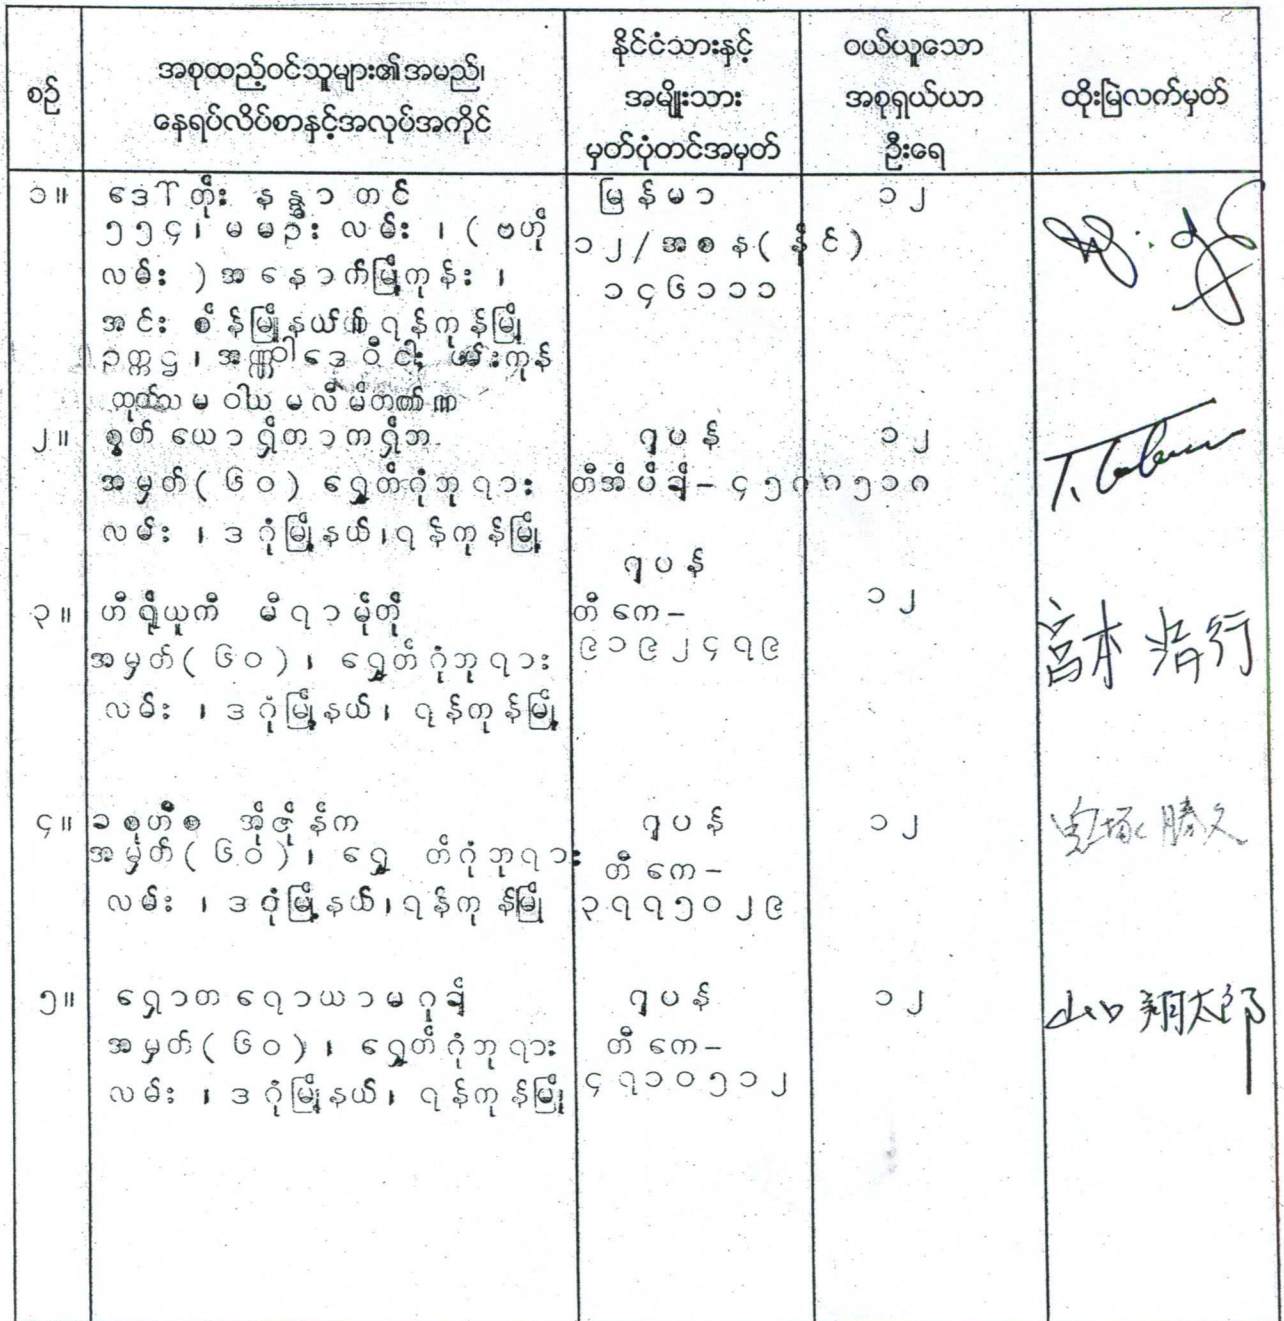 စဉ်
အစုထည့်ဝင်သူများ၏အမည်၊
နေရပ်လိပ်စာနှင့်အလုပ်အကိုင်
နိုင်ငံသားနှင့်
အမျိုးသား
မှတ်ပုံတင်အမှတ်
ဝယ်ယူသော
အစုရှယ်ယာ
ဦးရေ
ထိုးမြဲလက်မှတ်
၁။
ဒေါ်တိုး နန္ဒာတင်
၅၅၄၊ မမဦး လမ်း ၊ ( ဗဟို
လမ်း ) အနောက်မြို့ကုန်း ၊
အင်းစိန်မြို့နယ်၊ ရန်ကုန်မြို့
ဥက္ကဌ၊
ကုန်
မြန်မာ
၁၂/အစန(နိုင်)
၁၄၆၁၁၁
၁၂
၂။
ယောရှိတာကရှိဘ
အမှတ်(၆၀) ရွှေတိဂုံဘုရား
လမ်း ၊ ဒဂုံမြို့နယ်၊ရန်ကုန်မြို့
ဂျပန်
၁၂
၃။
ဟီရိုယူကီ မီရာမိုတို
အမှတ်(၆၀)၊ ရွှေတိဂုံဘုရား
လမ်း ၊ ဒဂုံမြို့နယ်၊ ရန်ကုန်မြို့
ဂျပန်
တီကေ-
၉၁၉၂၄၇၉
၁၂
宮本 清行
၄။
ခစုဟီစ အိုဇိုန်က
အမှတ်(၆၀)၊ ရွှေတိဂုံဘုရား
လမ်း ၊ ဒဂုံမြို့နယ်၊ရန်ကုန်မြို့
ဂျပန်
တီကေ-
၃၇၇၅၀၂၉
၁၂
勝久
၅။
ရှောတရောယာမဂူချီ
အမှတ်(၆၀)၊ ရွှေတိဂုံဘုရား
လမ်း ၊ ဒဂုံမြို့နယ်၊ ရန်ကုန်မြို့
ဂျပန်
တီကေ-
၄၇၁၀၅၁၂
၁၂
山口 翔太郎